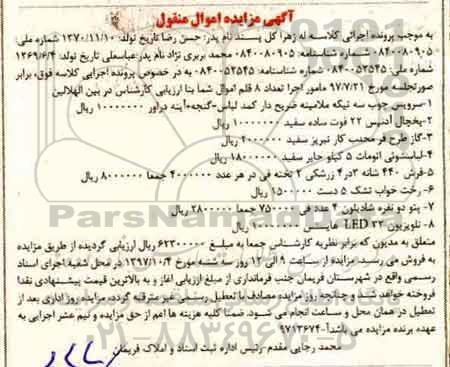 آگهی مزایده اموال منقول
به موجب پرونده اجرائی کلاسه له زهرا کل پسند نام پدر: حسن رضا تاریخ تولد: ۱۳۷۰/۱۱/۱۰ شماره ملی:
۰۸۴۰۰۸۰۹۰۵ شماره شناسنامه: ۰۸۴۰۰۸۰۹۰۵ محمد بربری نژاد نام پدر:عباسعلی تاریخ تولد: ۱۳۶۹/۶/۴
شماره ملی: ۰۸۴۰۰۵۳۵۴۵ شماره شناسنامه: ۰۸۴۰۰۵۳۵۴۵ به در خصوص پرونده اجرایی کلاسه فوق، برابر
صورتجلسه مورخ ۹۷/۷/۲۱ مامور اجرا تعداد ۸ قلم اموال شما بنا ارزیابی کارشناس در بین الهلالین
۱-سرویس چوب سه تیکه ملامینه ضریح دار کمد لباس-گنجه-آینه دراور ۱۰۰۰۰۰۰۰ ریال
۲-یخچال آدمیس ۲۲ فوت ساده سفید ۱۰۰۰۰۰۰۰ ریال
۳-گاز طرح فر محدب کار تبریز سفید ۲۰۰۰۰۰۰ ریال
۴-لباسشوئی اتومات ۵ کیلو حایر سفید ۱۸۰۰۰۰۰۰ ریال
۵-فرش ۴۴۰ شانه ۳در۴ زرشکی ۲ تخته فی در هر عدد ۴۰۰۰۰۰۰ جمعا ۸۰۰۰۰۰۰ ریال
۶- رخت خواب تشک ۵ دست ۱۵۰۰۰۰۰ ریال
۷- پتو دو نفره شادیلون ۴ عدد فی ۷۵۰۰۰۰ جمعا ۲۸۰۰۰۰۰ ریال
۸- تلویزیون LED ۳۲ هایسنس ۱۰۰۰۰۰۰۰ ریال
متعلق به مدیون که برابر نظریه کارشناس جمعا به مبلغ ۶۲۳۰۰۰۰۰ ریال ارزیابی گردیده از طریق مزایده
به فروش می رسید. مزایده از ساعت ۹ الی ۱۲ روز سه شنبه مورخ ۱۳۹۷/۱۰/۴ در محل شعبه اجرای اسناد
رسمی واقع در شهرستان فریمان جنب فرمانداری از مبلغ ارزیابی آغاز و به بالاترین قیمت پیشنهادی نقدا
فروخته خواهد شد و چنانچه روز مزایده مصادف با تعطیل رسمی غیر مترقبه گردد، مزایده روز اداری بعد از
تعطیل در همان محل و ساعت انجام می شود. ضمنا کلیه هزینه ها اعم از حق مزایده و نیم عشر اجرایی به
عهده برنده مزایده می باشد.آ-۹۷۱۳۶۷۴
محمد رجایی مقدم-رئیس اداره ثبت اسناد و املاک فریمان
ParsNamadData
۰۲۱-۸۸۳۴۹۶۷۰-۵